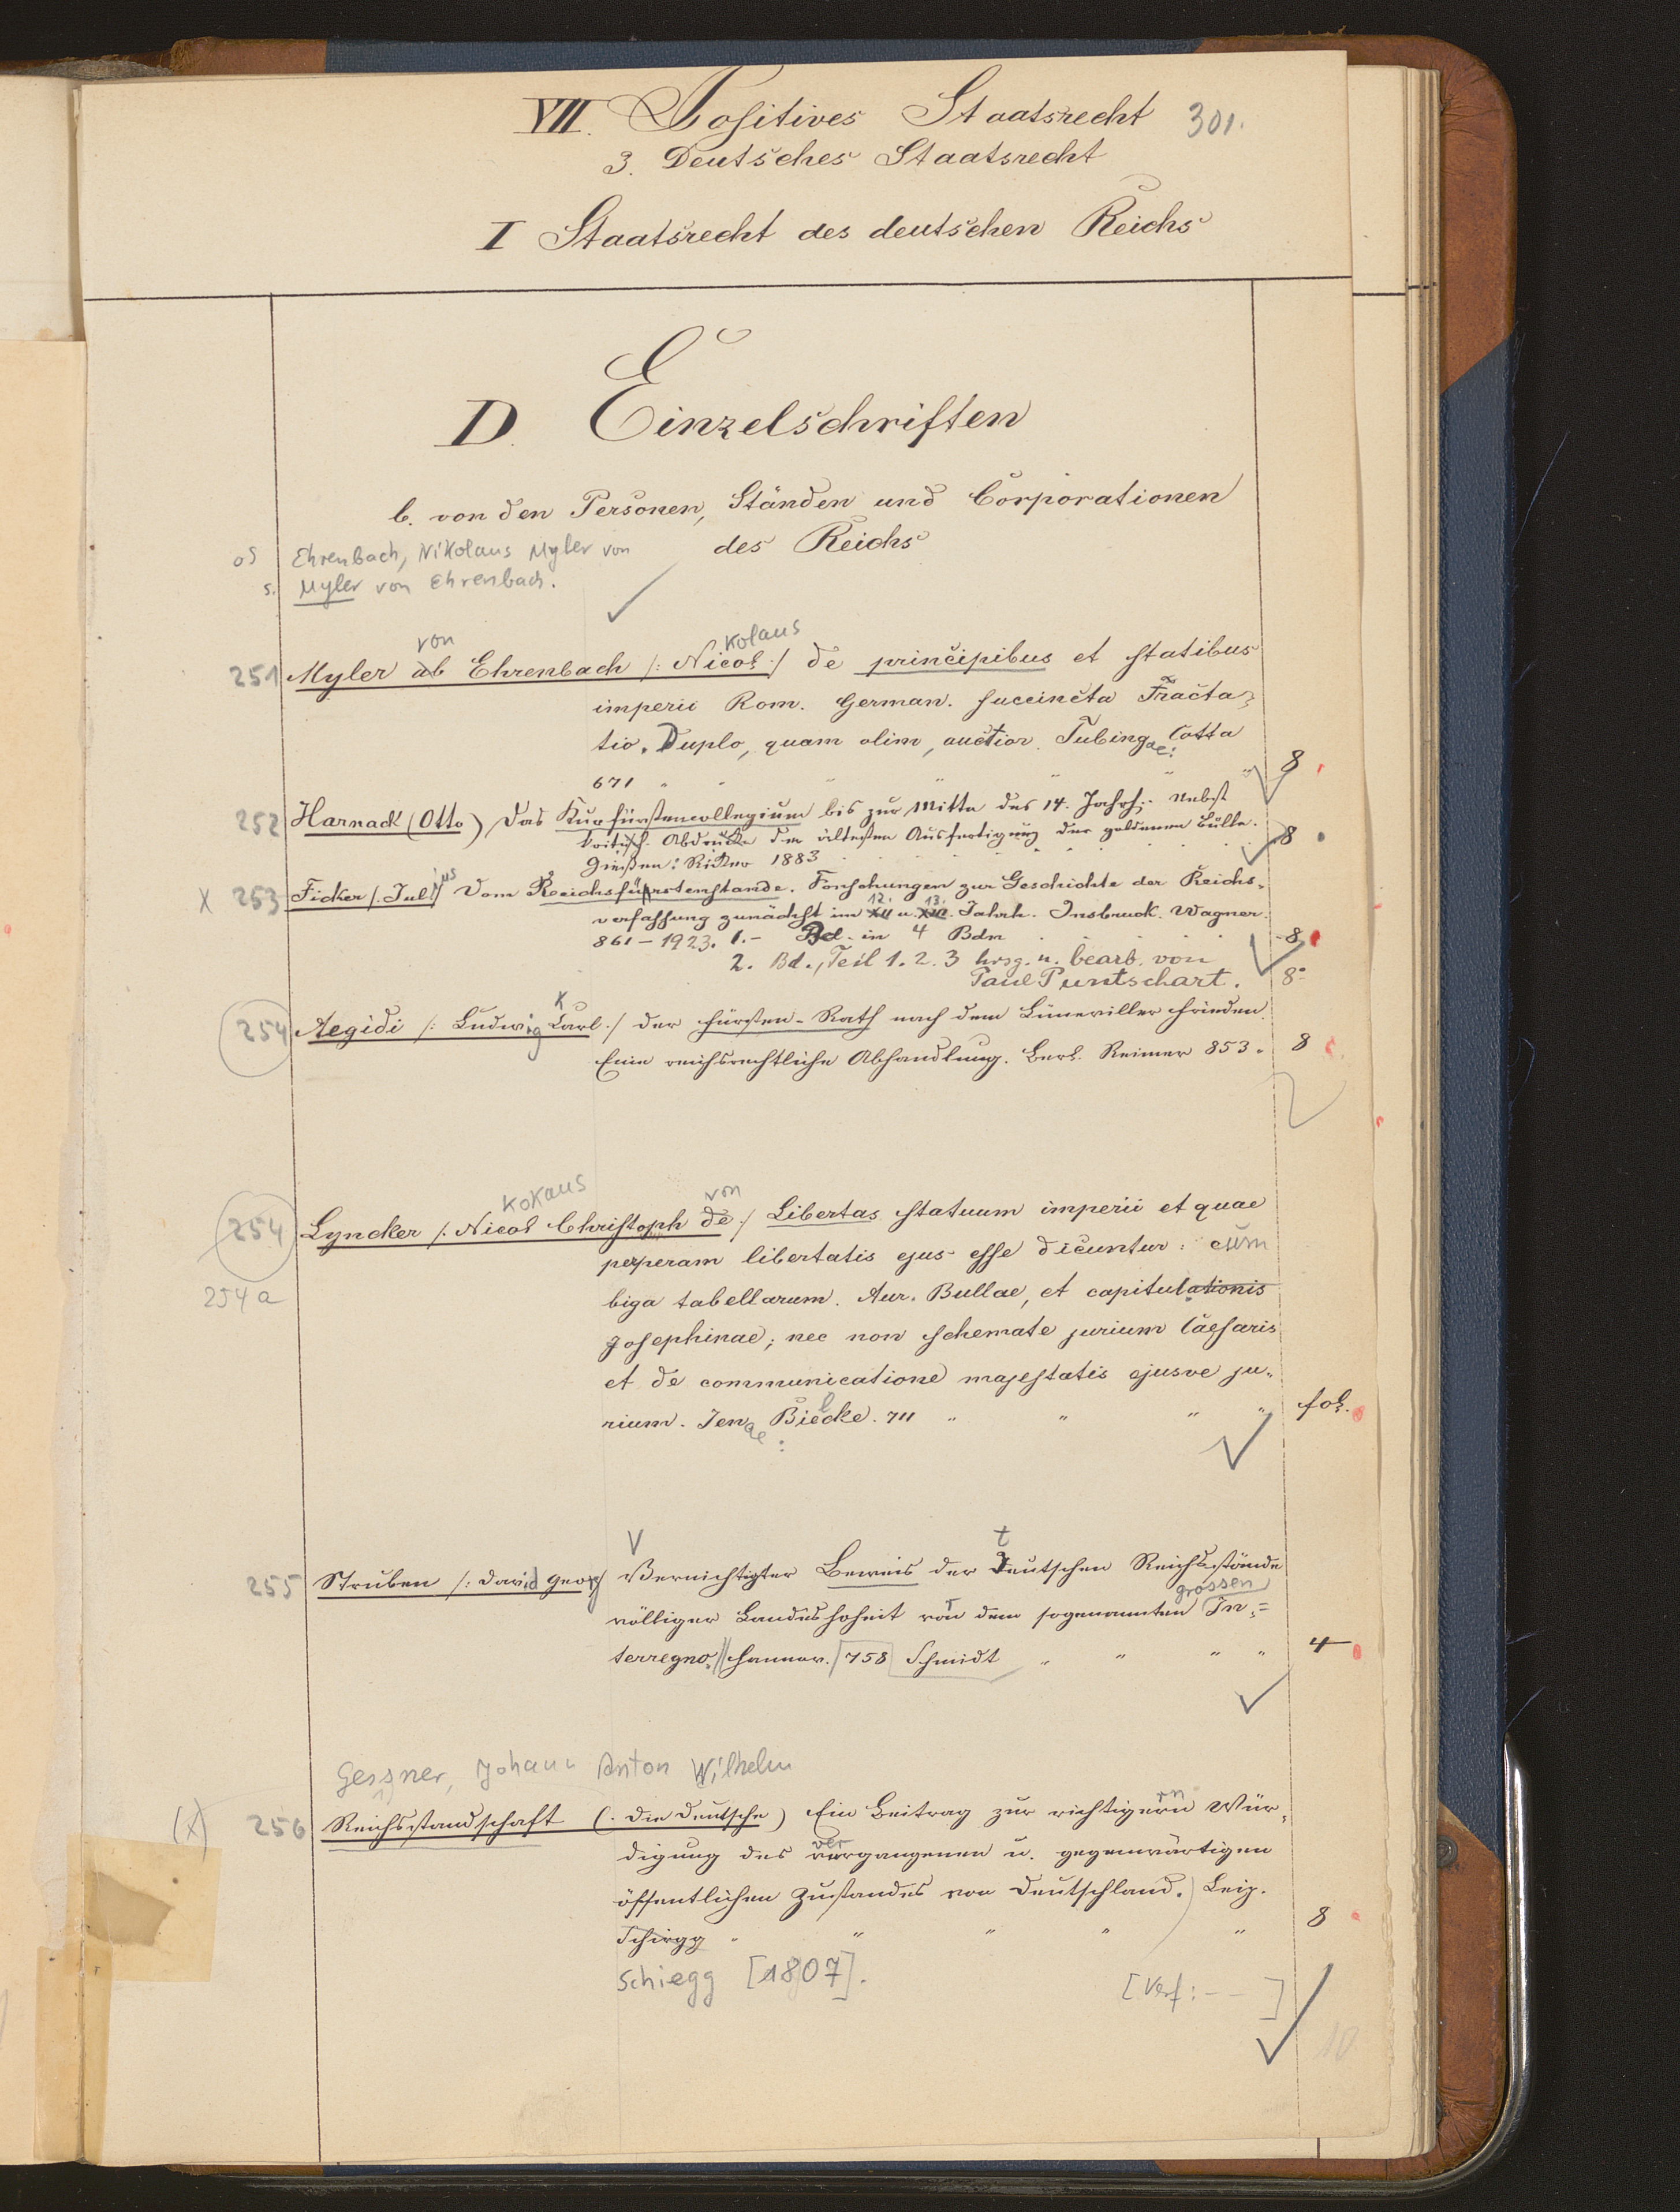 VII. Positives Staatsrecht 301.
3. Deutsches Staatsrecht
I Staatsrecht des deutschen Reichs
D. Einzelschriften
b. von den Personen, Ständen und Corporationen
des Reichs
Ehrenbach, Nikolaus Myler von
s. Myler von Ehrenbach.
von kolaus
251 Myler ab Ehrenbach /: Nicol :/ de principibus et statibus
imperii Rom. German. succincta Tracta-
tio. Duplo, quam olim, auctior. Tubingae: Cotta
671 " " " " " " 8
252 Harnack (Otto), Das Kurfürstencollegium bis zur Mitte des 14. Jahrh. Nebst
kritisch. Abdrucke der ältesten Ausfertigung der goldenen Bulle.
Giessen: Ricker 1883 8
X 253 Ficker /. Julius Vom Reichsfürstenstande. Forschungen zur Geschichte der Reichs-
verfassung zunächst im XII 12. u. XIII. 13. Jahrh. Insbruck. Wagner.
861-1923. 1.- Bd. in 4 Bdn 8
2. Bd., Teil 1. 2. 3 hrsg. u. bearb. von
Paul Puntschart. 8°
K
254 Aegidi /: Ludwig Carl :/ der Fürsten-Rath nach dem Lüneviller Frieden.
Eine reichsrechtliche Abhandlung. Berl. Reimer 853. 8
kolaus von
254 Lyncker /. Nicol Christoph de :/ Libertas statuum imperii et quae
254a
perperam libertatis ejus esse dicuntur: cum
biga tabellarum. Aur. Bullae, et capitulationis
Josephinae; nec non schemate jurium Caesaris
et de communicatione majestatis ejusve ju-
rium. Jenae: Bielcke. 711 " " " " fol.
V t
255 Struben /: David Georg Vernichtigter Beweis der Teutschen Reichsstände
grossen
völliger Landeshoheit vor dem sogenannten In-
terregno. Hannov. 758 Schmidt " " " " 4
Gessner, Johann Anton Wilhelm
(X) 256 Reichsstandschaft (: die deutsche) Ein Beitrag zur richtigern Wür-
digung des vergangenen u. gegenwärtigen
öffentlichen Zustandes von Deutschland. Leip.
Schiegg " " " " " 8
Schiegg [1807]. [Verf: - - ]
10